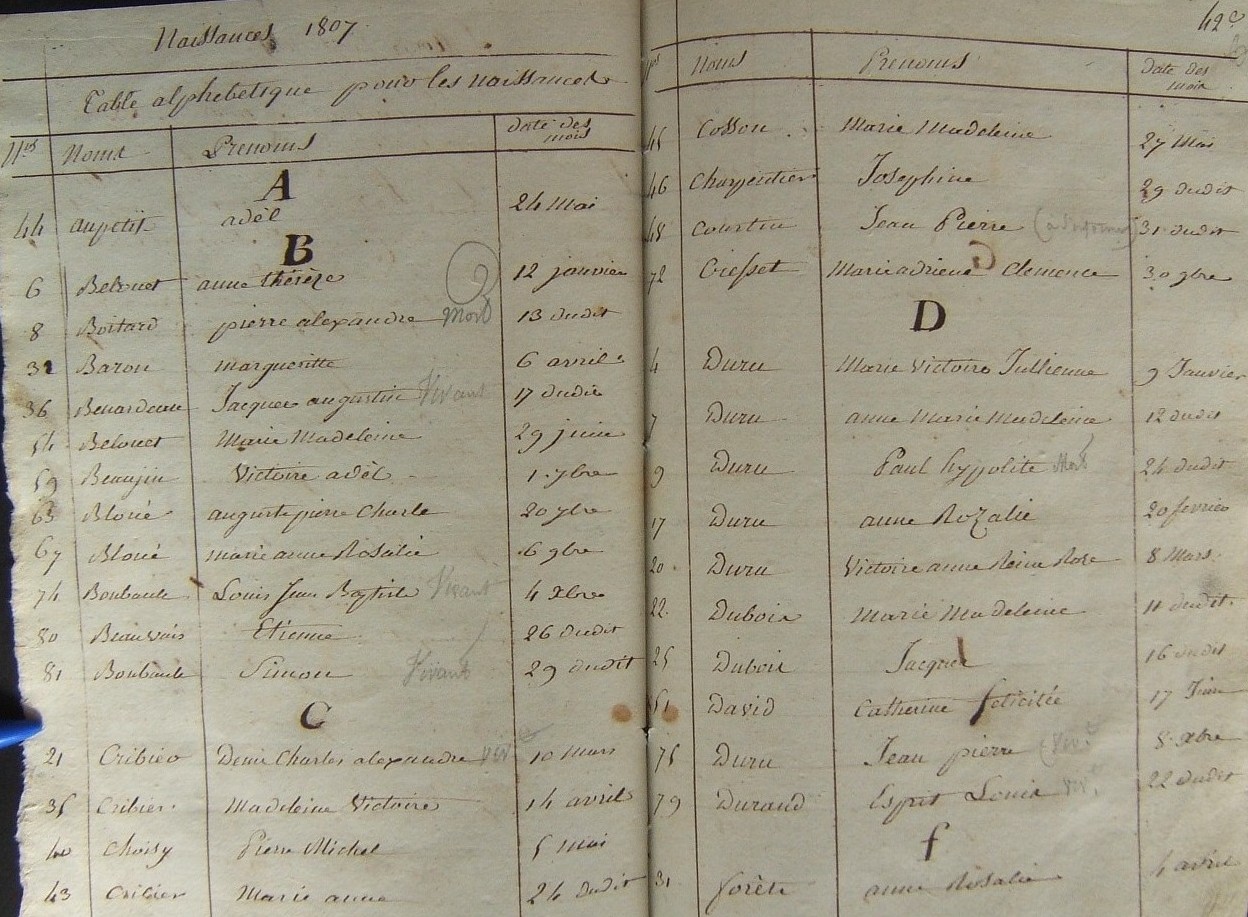 Naissances 1807
Table alphebetique pour les naissances
Nos Noms Prenoms date des mois
A
44 aupetit adèl 24 Mai
B
6 Belouet anne thérèze 12 janvier
8 Boitard pierre alexandre Mort 13 dudit
32 Baron margueritte 6 avril
36 Jacques augustin Vivant 17 dudit
54 Belouet Marie Madeleine 29 juin
59 Beaujin Victoire adèl 1 7bre
63 Bloué auguste pierre Charle 20 7bre
67 Bloué marie anne Rosalie 6 9bre
74 Boubault Louis Jean Baptiste Vivant 4 Xbre
80 Beauvais Etienne 26 dudit
81 Boubault Simon Vivant 29 dudit
C
21 Cribier Denis Charles alexandre viv 10 Mars
35 Cribier Madeleine Victoire 14 avril
40 Choisy Pierre Michel 5 mai
43 Cribier Marie anne 24 dudit
42e
Nos Noms Prenoms date des mois
45 Cosson Marie Madeleine 27 Mai
46 Charpentier Josephine 29 dudit
48 Courtin Jean Pierre 31 dudit
72 Cresset Marie adriene Clemence 30 9bre
D
4 Duru Marie Victoire Jullienne 9 Janvier
7 Duru anne Marie Madeleine 12 dudit
9 Duru Paul hypolite Mort 24 dudit
17 Duru anne Rozalie 20 fevrier
20 Duru Victoire anne Reine Rose 8 Mars
22 Dubois Marie Madeleine 11 dudit
25 Dubois Jacques 16 dudit
51 David Catherine felicitée 17 Juin
75 Duru Jean pierre viv 8 Xbre
79 Durand Esprit Louis viv 22 dudit
f
31 forête anne Rosalie 4 avril